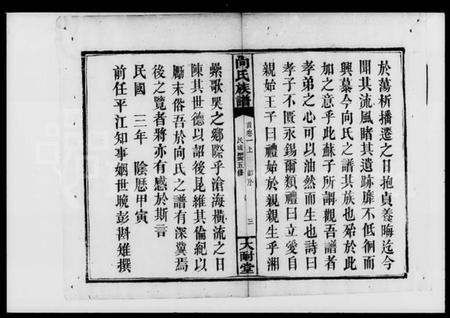 於蕩析播遷之日抱貞養晦迄今
聞其流風睹其遺跡靡不低徊而
興慕今向氏之譜其族也殆於此
加之意乎此蘇子所謂觀吾譜者
孝弟之心可以油然而生也詩曰
孝子不匱永錫爾類禮曰立愛自
親始王子曰禮始於親親生乎湘
向氏族譜
首卷一上
三
民國三五修
大耐堂
纍歌哭之鄉際乎滄海橫流之日
陳其世德以詔後昆維其倫紀以
勵末俗吾於向氏之譜有深冀焉
後之覽者將亦有感於斯言
民國 三年 陰歷甲寅
前任平江知事姻世晚彭斟雉撰